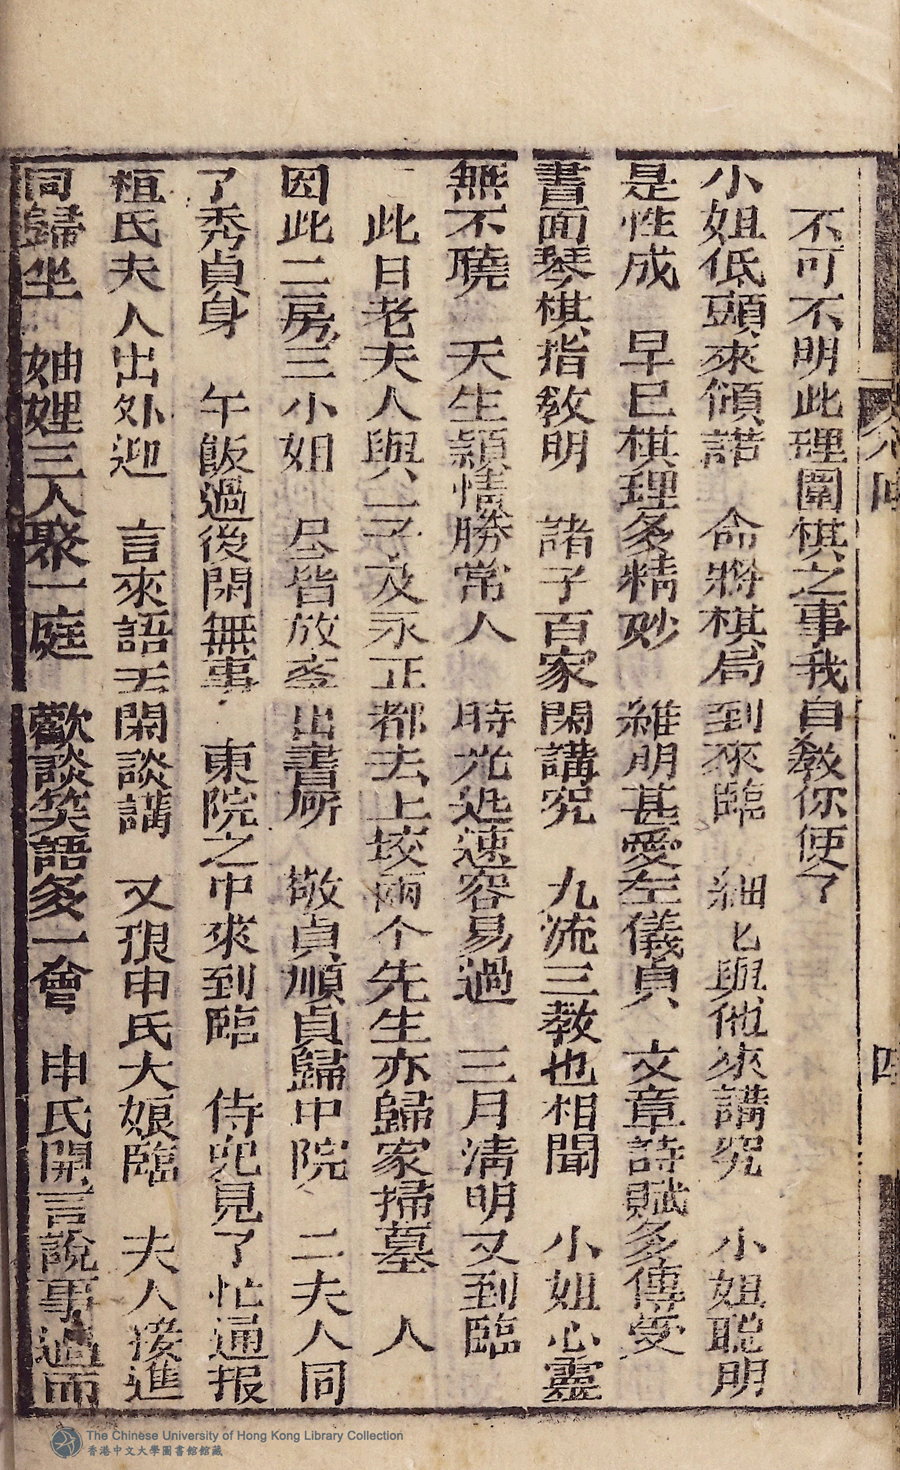 不可不明此理圍棋之事我自教你便了
小姐低頭來傾諾　命將棋局到來臨　細匕與他來講究　小姐聰明
是性成　早已棋理多精妙　維明甚愛左儀貞　文章詩賦多傳受
書面琴棋指敎明　諸子百家閑講究　九流三教也相聞　小姐心靈
無不曉　天生穎慧勝常人　時光迅速容易過　三月清明又到臨
此日老夫人與二子及永正都去上坟兩个先生亦歸家掃墓　人
因此二房三小姐　尽皆放斈出書所　敬貞順貞歸中院　二夫人同
了秀貞身　午飯過後閑無事　東院之中來到臨　侍兒見了忙通报
桓氏夫人出外迎　言來語去閑談講　又報申氏大娘臨　夫人接進
同歸坐　妯娌三人聚一庭　歡談笑語多一會　申氏開言說事適而
四
The Chinese University of Hong Kong Library Collection
香港中文大學圖書館館藏